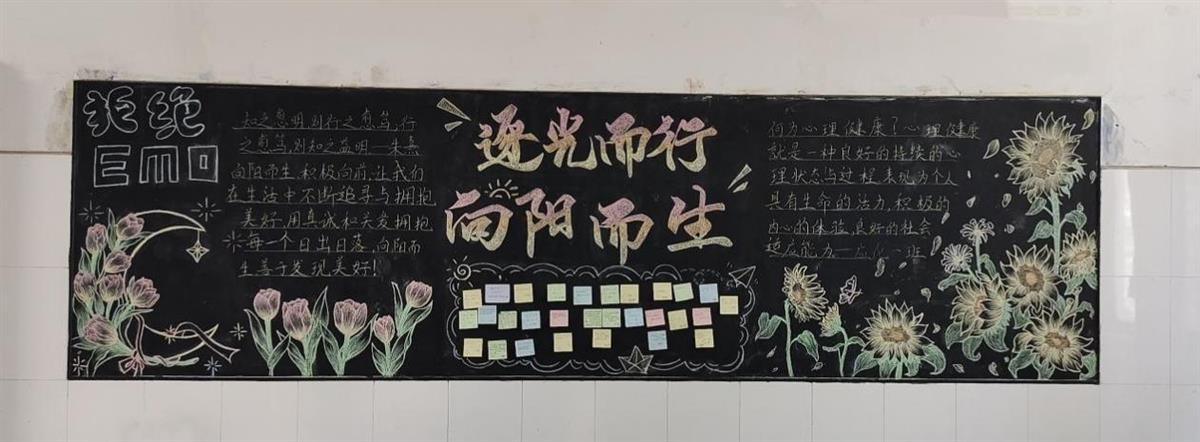 拒绝
EMO
知之愈明,则行之愈笃,行
之愈笃,则知之益明—朱熹
向阳而生,积极向前,让我们
在生活中不断追寻与拥抱
美好,用真诚和关爱拥抱
每一个日出日落,向阳而
生善于发现美好!
逐光而行
向阳而生
何为心理健康?心理健康
就是一种良好的持续的心
理状态与过程表现为个人
具有生命的活力,积极的
内心的体验,良好的社会
适应能力